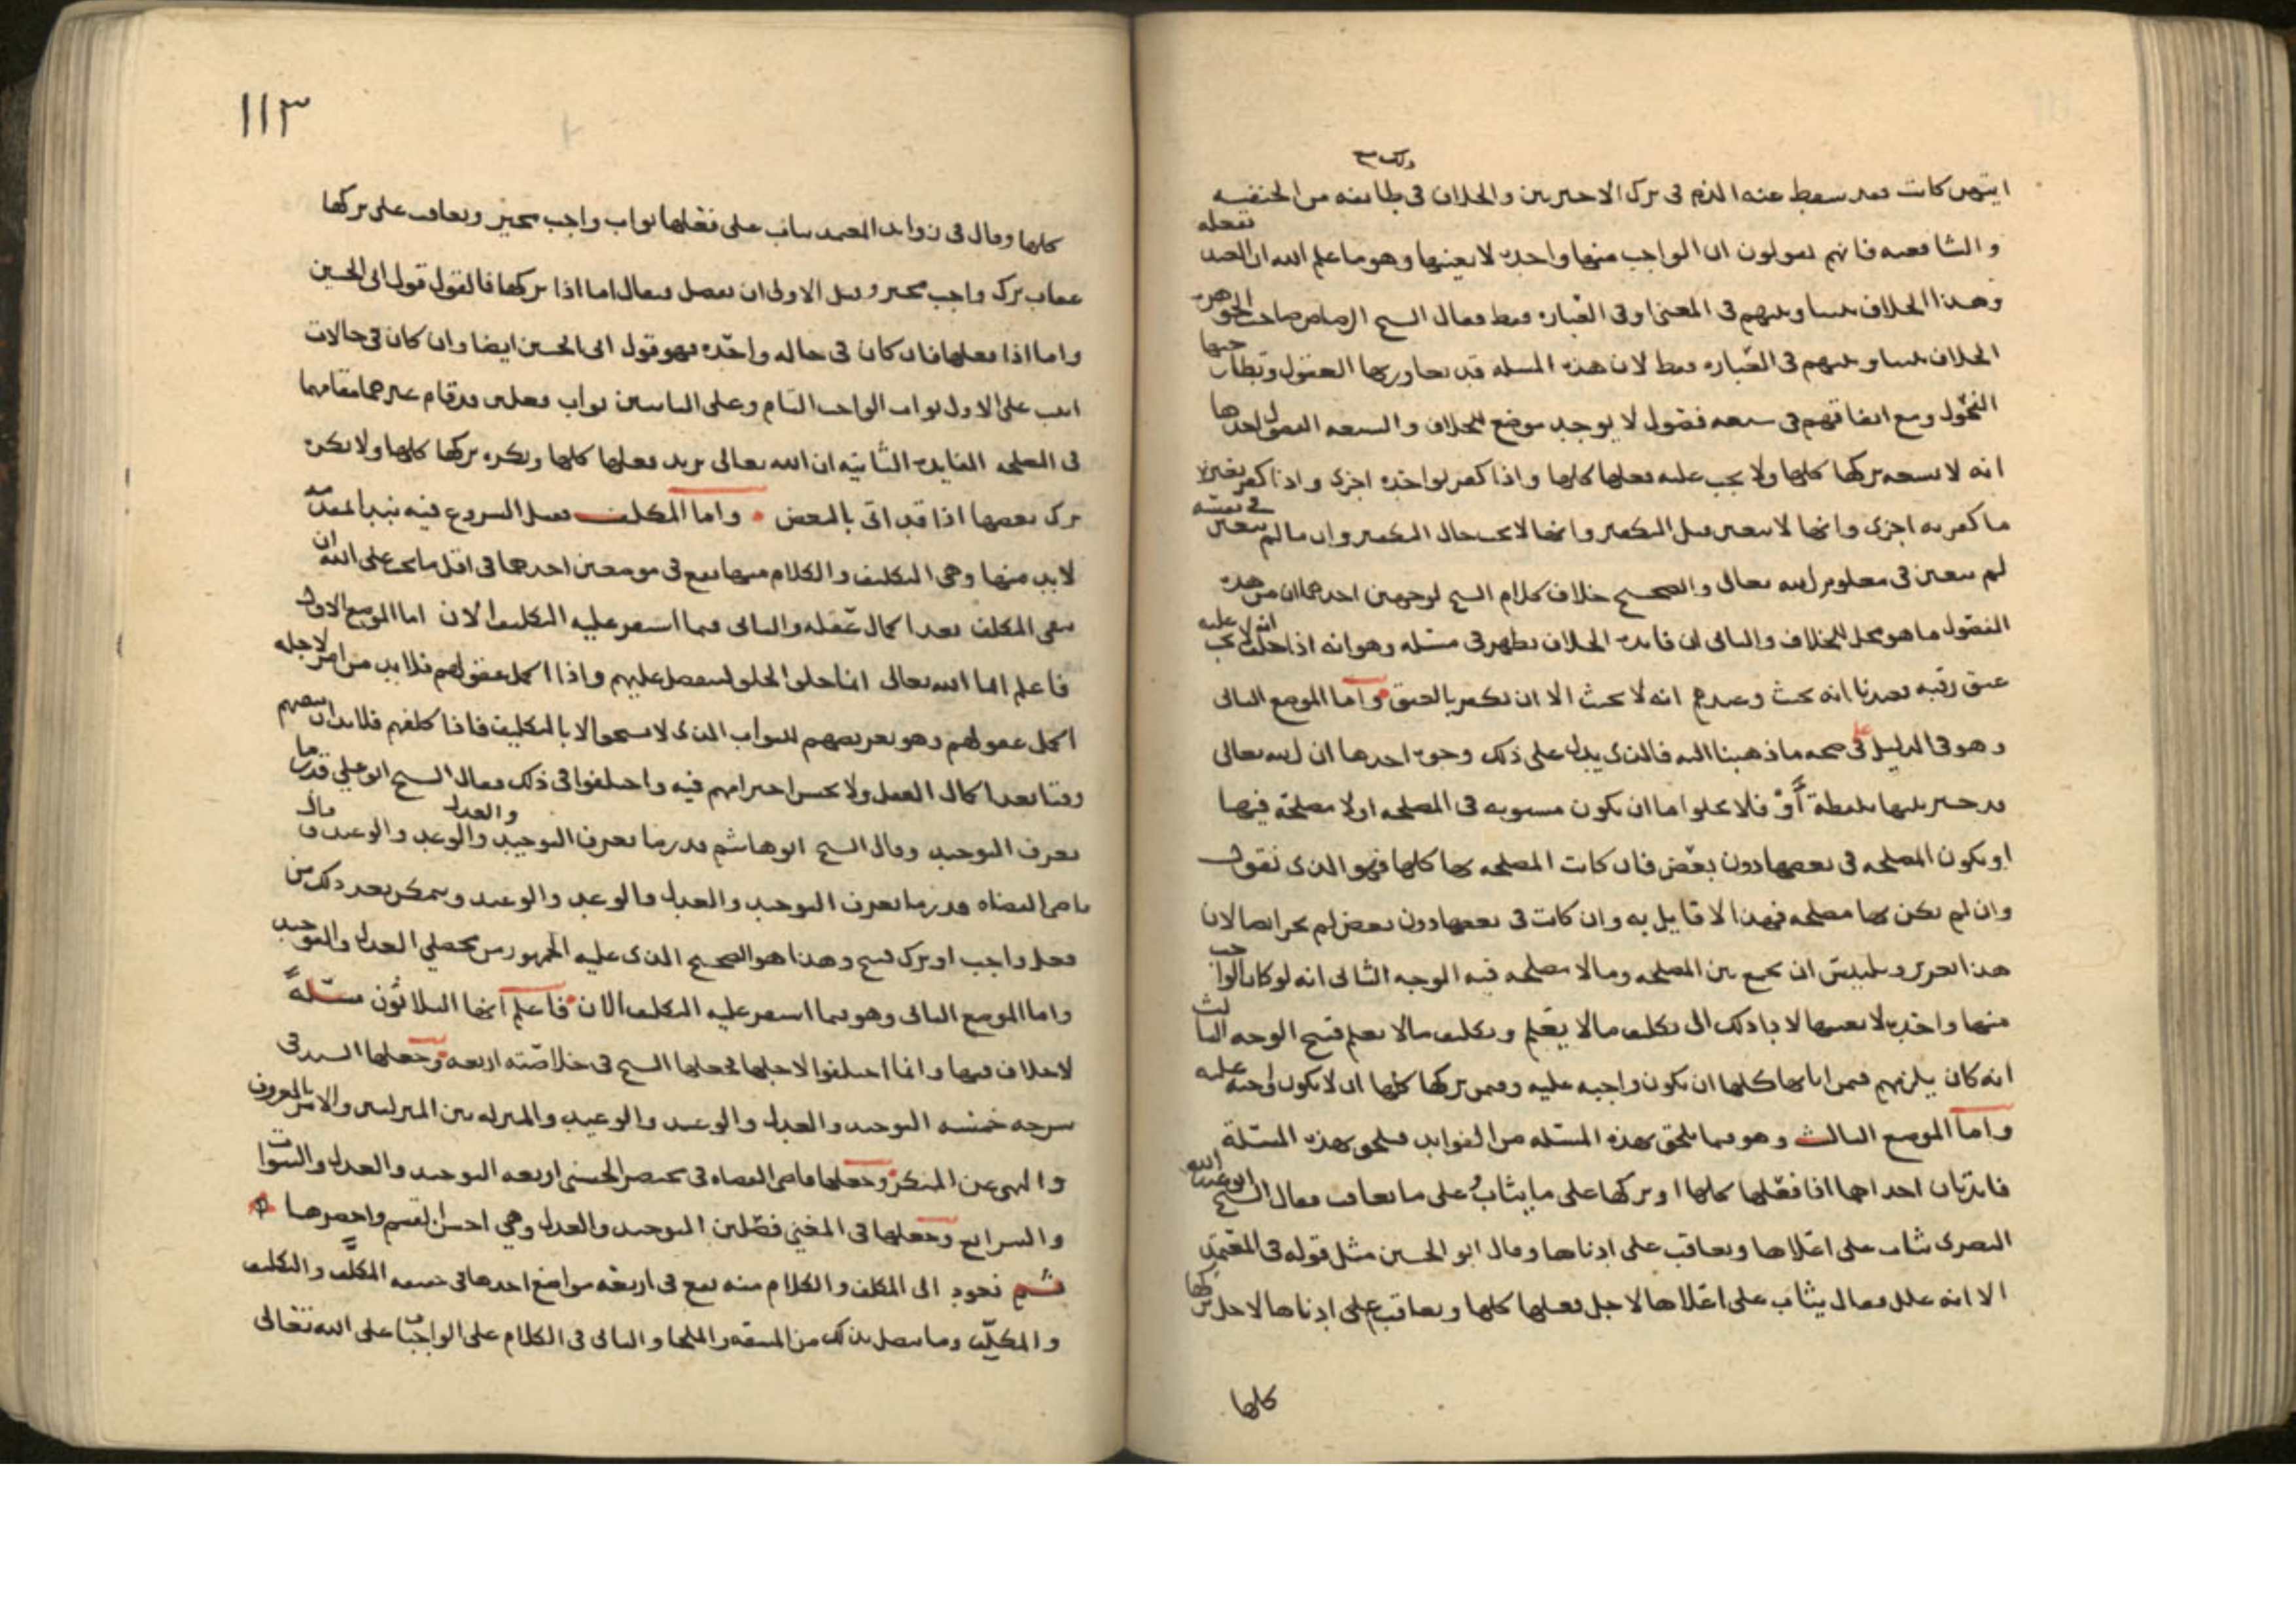 ذلك
ايتهن كانت فقد سقط عنه الذم فى ترك الاخيرتين والخلاف فى طائفه من الحنفيه
والشافعيه فانهم يقولون ان الواجب منها واحدة لا بعينها وهو ما علم الله ان العبد يفعله
وهذا الخلاف بيننا وبينهم فى المعنى او فى العباره فقط فقال الشيخ الرصاص صاحب الجوهره
الخلاف بيننا وبينهم فى العباره فقط لان هذه المسله قد تجاوزتها العقول وتطارحها
الفحول ومع اتفاقهم فى سبعه فصول لا يوجد موضع للخلاف والسبعه الفصول احدها
انه لا يسعه تركها كلها ولا يجب عليه فعلها كلها واذا كفر بواحده اجزى واذا كفر بغير
ما كفر به اجزى وانها لا تتعين قبل التكفير وانها لا تجب حال التكفير وان ما لم يتعين فى نفسه
لم يتعين فى معلوم الله تعالى والصحيح خلاف كلام الشيخ لوجهين احدهما ان من هذه
الفصول ما هو محل للخلاف والثانى ان فايدة الخلاف تظهر فى مسئله وهو انه اذا حلف انه لا يجب عليه
عتق رقبه فعندنا انه يحنث وعندهم انه لا يحنث الا ان يكفر بالعتق واما الموضع الثانى
وهو فى الدليل على صحه ما ذهبنا اليه فالذى يدل على ذلك وجوه احدها ان الله تعالى
قد خير بينها بلفظة أو فلا يخلوا اما ان يكون مستويه فى المصلحه او لا مصلحة فيها
او يكون المصلحه فى بعضها دون بعض فان كانت المصلحه بها كلها فهو الذى نقول
وان لم يكن بها مصلحه فهذا لا قايل به وان كانت فى بعضها دون بعض لم يجز ايضا لان
هذا تغرير وتلبيس ان يجمع بين المصلحه وما لا مصلحه فيه الوجه الثانى انه لو كان الواجب
منها واحدة لا بعينها لادا ذلك الى تكليف ما لا يعلم وتكليف ما لا يعلم قبيح الوجه الثالث
انه كان يلزمهم فيمن اتا بها كلها ان يكون واجبه عليه وفيمن تركها كلها ان لا يكون واجبه عليه
واما الموضع الثالث وهو فيما يلحق بهذه المسئله من الفوايد فيلحق بهذه المسئلة
فايدتان احداهما اذا فعلها كلها او تركها على ما يثاب وعلى ما يعاقب فقال الشيخ ابو عبد الله
البصرى يثاب على اعلاها ويعاقب على ادناها وقال ابو الحسين مثل قوله فى المعتمد
الا انه علل فقال يثاب على اعلاها لاجل فعلها كلها ويعاقب على ادناها لاجل تركها
كلها
١١٣
كلها وقال فى زوايد المعتمد يثاب على فعلها ثواب واجب مخير ويعاقب على تركها
عقاب ترك واجب مخير وقيل الاولى ان يفصل فيقال اما اذا تركها فالقول قول ابى الحسين
واما اذا فعلها فان كان فى حاله واحده فهو قول ابى الحسين ايضا وان كان فى حالات
اثيب على الاول ثواب الواجب التام وعلى الباقيين ثواب فعلين قد قام غيرهما مقامهما
فى المصلحه الفايدة الثانيه ان الله تعالى يريد فعلها كلها ويكره تركها كلها ولا يكره
ترك بعضها اذا قد اتى بالبعض واما المكلف فقبل الشروع فيه نبدا بمقدمه
لا بد منها وهى التكليف والكلام منها يقع فى موضعين احدهما فى اقل ما يجب على الله ان
يبقى المكلف بعد اكمال عقله والثانى فيما استقر عليه التكليف الان اما الموضع الاول
فاعلم ان الله تعالى انما خلق الخلق ليتفضل عليهم واذا اكمل عقولهم فلا بد من امر لاجله
اكمل عقولهم وهو تعريضهم للثواب الذى لا يستحق الا بالتكليف فاذا كلفهم فلا بد ان يبقيهم
وقتا بعد اكمال العقل ولا يحسن اخترامهم فيه واختلفوا فى ذلك فقال الشيخ ابو علي قدر ما
يعرف التوحيد والعدل وقال الشيخ ابو هاشم قدر ما يعرف التوحيد والوعد والوعيد وقال
قاضى القضاه قدر ما يعرف التوحيد والعدل والوعد والوعيد ويتمكن بعد ذلك من
فعل واجب او ترك قبيح وهذا هو الصحيح الذى عليه الجمهور من محصلي العدل والتوحيد
واما الموضع الثانى وهو فيما استقر عليه التكليف الان فاعلم انها الثلاثون مسئلةً
لا خلاف فيها وانما اختلفوا لاجلها فجعلها الشيخ فى خلاصته اربعه وجعلها السيد فى
شرحه خمسه التوحيد والعدل والوعد والوعيد والمنزله بين المنزلتين والامر بالمعروف
والنهى عن المنكر وجعلها قاضى القضاه فى مختصر الحسنى اربعه التوحيد والعدل والنبوات
والشرايع وجعلها فى المغني فصلين التوحيد والعدل وهي احسن القسم واحصرها
ثم نعود الى المكلف والكلام منه يقع فى اربعه مواضع احدها فى حقيقه المكلَّف والتكليف
والمكلِّف وما يتصل بذلك من المشقه والملجا والثانى فى الكلام على الواجبات على الله تعالى